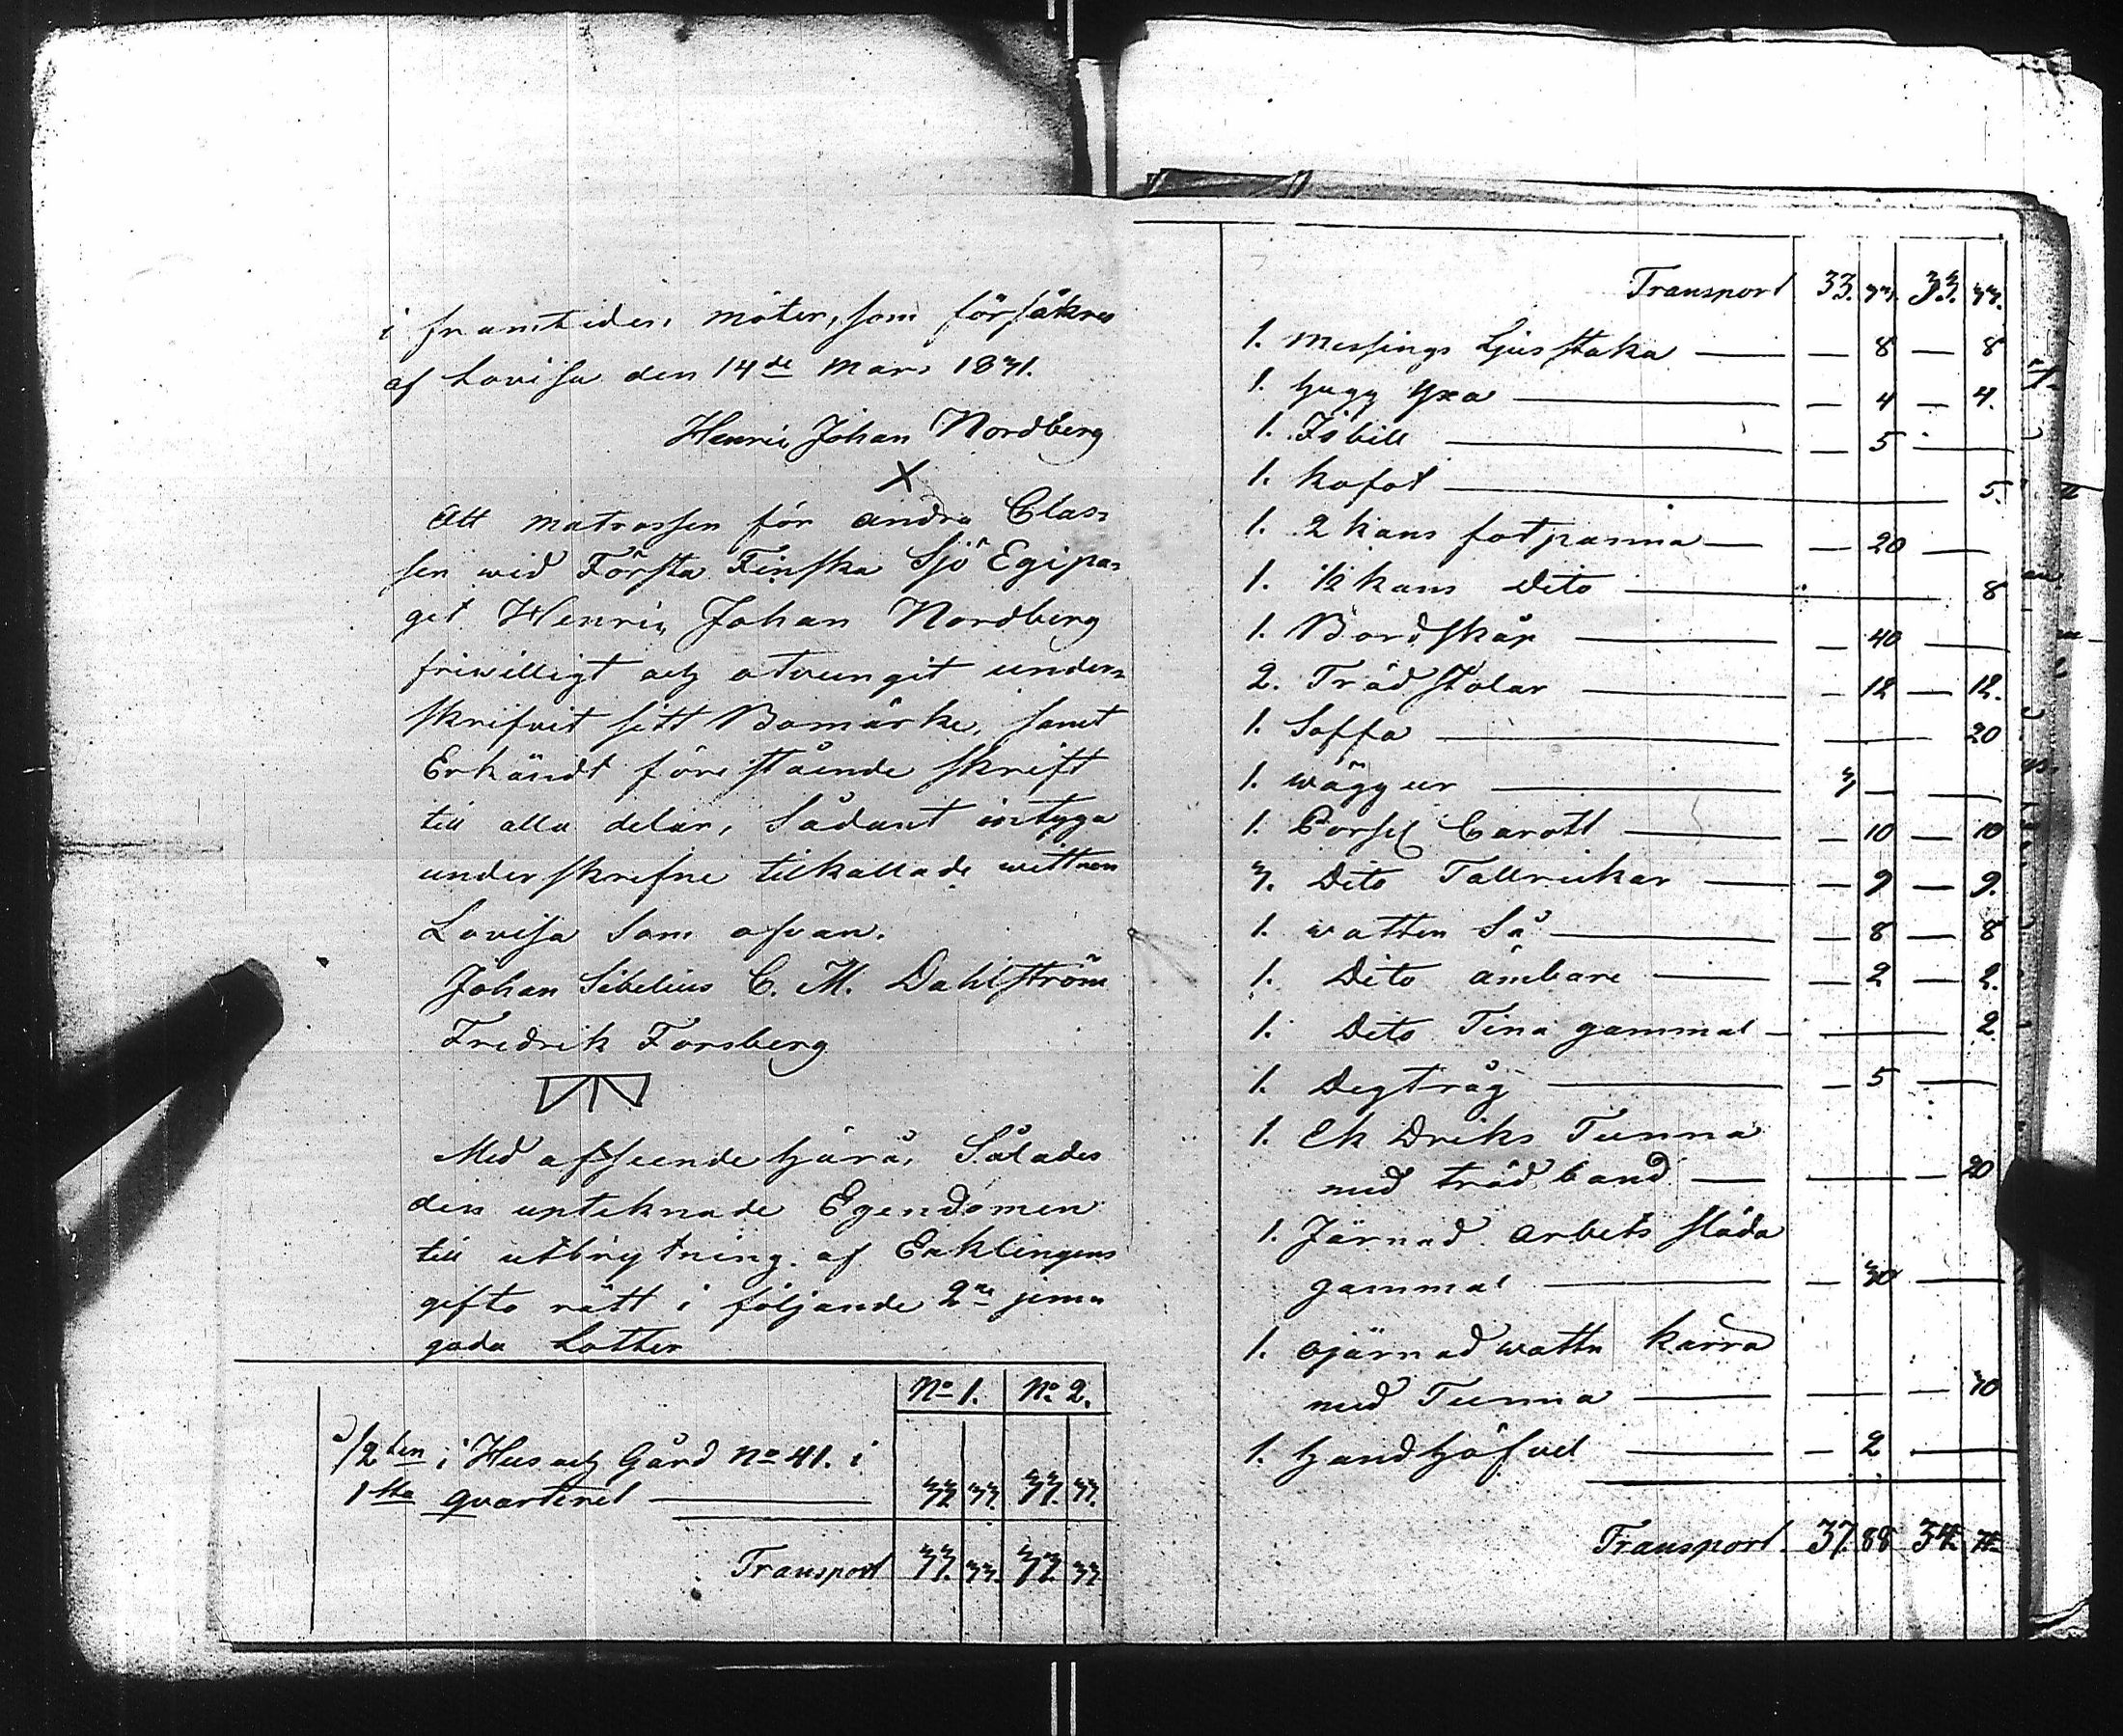 i framtiden möter, som försäkres
af Lovisa den 14de Mars 1831.
Henric Johan Nordberg
X
Att matrossen för andra Clas-
sen wid Första Finska Sjö Eqipa-
get Henric Johan Nordberg
friwilligt och otvungit under-
skrifvit sitt Bomärke, samt
Erkändt förestående skrift
till alla delar, Sådant intyga
underskrefne tilkallade wittnen
Lovisa som ofvan.
Johan Sibelius C. M. Dahlström
Fredrik Forsberg
Med afseende härå, Sålades
den upteknade Egendomen
till utbrytning af Enklingens
gifto rätt i följande 2ne jemn
goda Lotter
No 1. No 2.
1/2ten i Hus och Gård No 41. i
1sta qvarteret — 33 33. 33. 33.
Transport 33. 33. 33. 33
Transport 33. 33. 33. 33.
1. Messings Ljusstaka — 8 — 8
1. hugg Yxa — 4 — 4.
1. Isbill — 5 —
1. kofot — 5.
1. 2 kans fotpanna — 20 —
1. 1/2 kans Dito — 8
1. Bordskåp — 40 —
2. Träd Stolar — 12 — 12.
1. Soffa — 20
1. wägg ur — 3 — —
1. Porsl Carott — 10 — 10
3. Dito Tallrickar — 9 — 9.
1. watten Så — 8 — 8
1. Dito ämbare — 2 — 2.
1. Dito Tina gammal — 2.
1. Degtråg — 5 —
1. Ek Driks Tunna
med träd band — 20
1. Järnad Arbets släda
gammal — 30 —
1. ojärnad wattn kärra
med Tunna — 30
1. handhöfvel — 2 —
Transport. 37. 88 34.